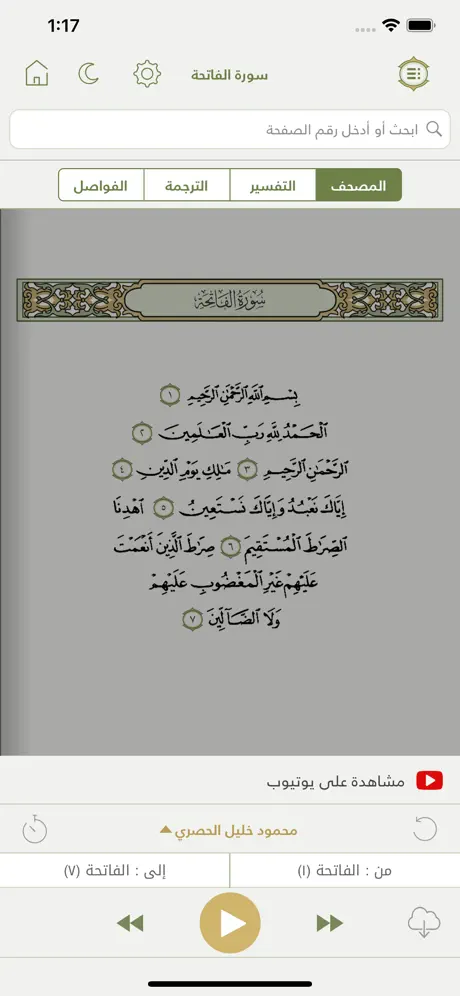 1:17
سورة الفاتحة
ابحث أو أدخل رقم الصفحة
المصحف
التفسير
الترجمة
الفواصل
سُورَةُ الفَاتِحَةِ
بِسْمِ ٱللَّهِ ٱلرَّحْمَٰنِ ٱلرَّحِيمِ ١
ٱلْحَمْدُ لِلَّهِ رَبِّ ٱلْعَٰلَمِينَ ٢
ٱلرَّحْمَٰنِ ٱلرَّحِيمِ ٣ مَٰلِكِ يَوْمِ ٱلدِّينِ ٤
إِيَّاكَ نَعْبُدُ وَإِيَّاكَ نَسْتَعِينُ ٥ ٱهْدِنَا
ٱلصِّرَٰطَ ٱلْمُسْتَقِيمَ ٦ صِرَٰطَ ٱلَّذِينَ أَنْعَمْتَ
عَلَيْهِمْ غَيْرِ ٱلْمَغْضُوبِ عَلَيْهِمْ
وَلَا ٱلضَّآلِّينَ ٧
مشاهدة على يوتيوب
محمود خليل الحصري
من : الفاتحة (١)
إلى : الفاتحة (٧)